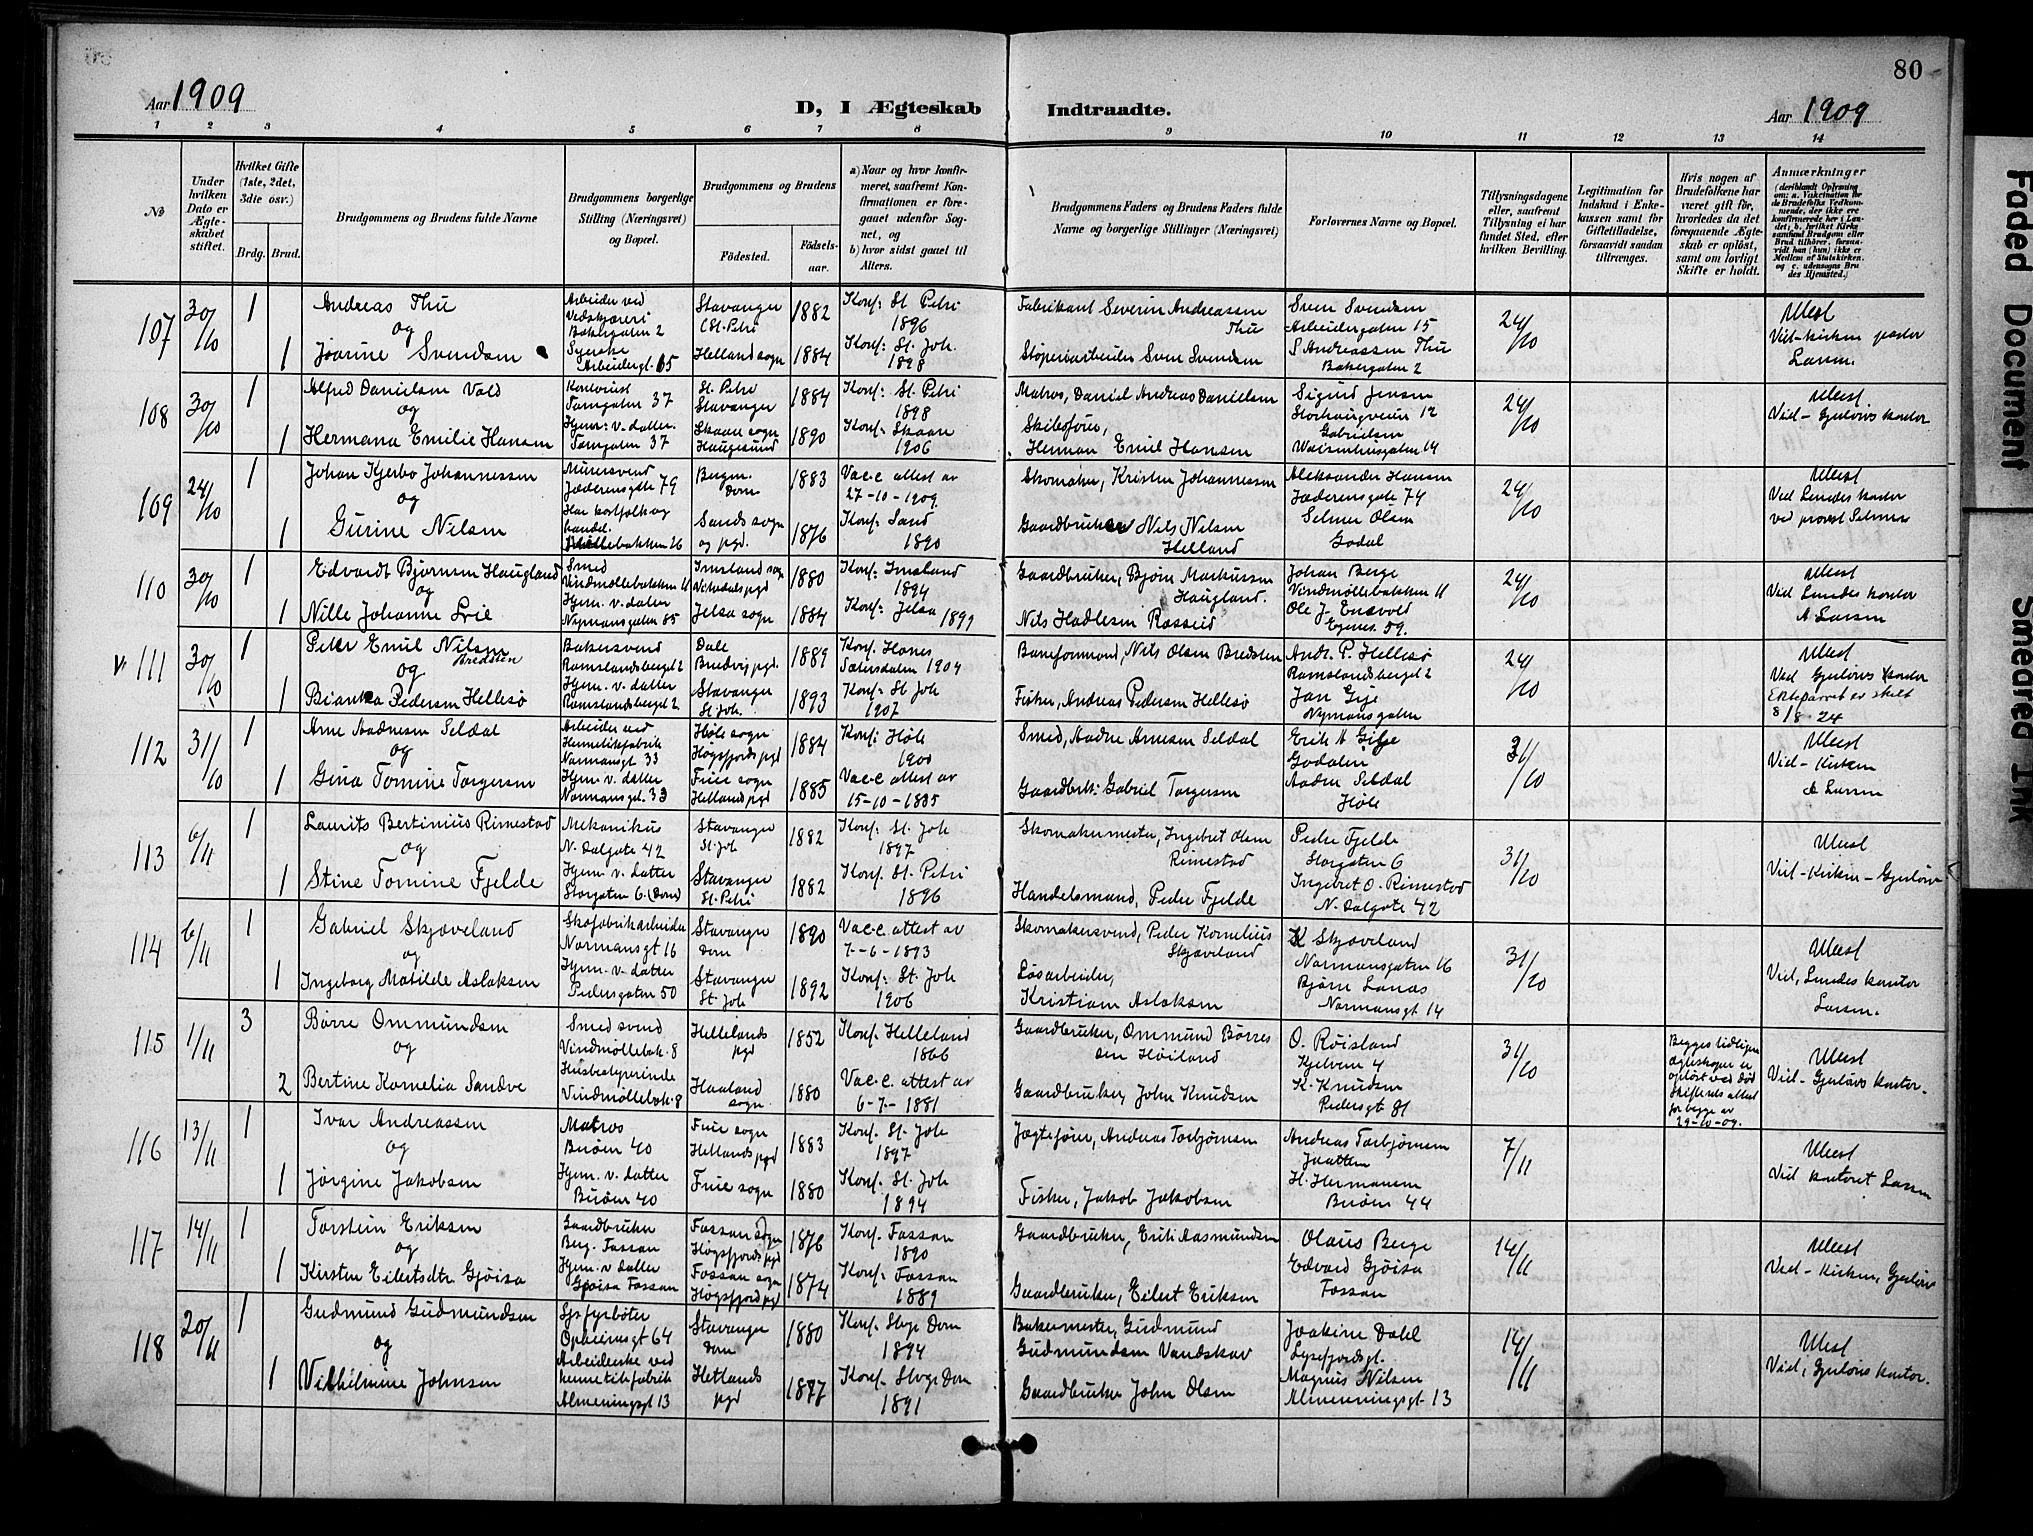 80
Aar 1909
D, I Ægteskab Indtraadte.
Aar 1909
1 2 3 4 5 6 7 8 9 10 11 12 13 14
No
Under hvilken Dato er Ægteskabet stiftet.
Hvilket Gifte (1ste, 2det, 3die osv.)
Brdg. Brud.
Brudgommens og Brudens fulde Navne
Brudgommens borgerlige Stilling (Næringsvei) og Bopæl.
Brudgommens og Brudens
Fødested.
Fødselsaar.
a) Naar og hvor konfirmeret, saafremt Konfirmationen er foregaaet udenfor Sognet, og
b) hvor sidst gaaet til Alters.
Brudgommens Faders og Brudens Faders fulde Navne og borgerlige Stillinger (Næringsvei)
Forlovernes Navne og Bopæl.
Tillysningsdagene eller, saafremt Tillysning ei har fundet Sted, efter hvilken Bevilling.
Legitimation for Indskud i Enkekassen samt for Giftetilladelse, forsaavidt saadan tiltrænges.
Hvis nogen af Brudefolkene har været gift før, hvorledes da det foregaaende Ægteskab er opløst, samt om lovligt Skifte er holdt.
Anmærkninger
107 30/10 1 Andreas Thu Arbeider ved Stavanger 1882 Konf: St Petri 1896
og
1 Jorine Svendsen Syerske Arbeidergt. 65 Helland sogn 1884 Konf: St. Joh. 1898
Fabrikant Severin Andreassen Thu
Støperiarbeider Sven Svendsen
Sven Svendsen Arbeidergaten 15
S Andreassen Thu Bakergaten 2
24/10
Viel-kirken pastor Larsen.
108 30/10 1 Alfred Danielsen Vold Taragaten 37 St. Petri Stavanger 1884 Konf: St. Petri 1898
og
1 Hermana Emilie Hansen Hjem: v. datter. Skaare sogn Haugesund 1890 Konf: Skaare 1906
Matros, Daniel Andreas Danielsen
Skibsfører, Herman Emil Hansen
Sigurd Jensen Storhaugveien 12
Gabrielsen
24/10
Viel - Gjerløvs kontor
109 24/10 1 Johan Kjerbo Johannessen Murersvend Jæderensgate 79 Bergen Dom 1883 Vac-c attest av 27-10-1909
og
1 Gurine Nilsen Sands sogn og pgd. 1876 Konf: Sand 1890
Skomaker, Kristen Johannessen
Gaardbruker Nils Nilsen Helland
Aleksander Hansen Jæderensgate 74
Selmer Olsen Godal
24/10
Viel Lundes kontor ved provst Selmer
110 30/10 1 Edvardt Bjørnsen Haugland Smed Vindmøllebakken 11 Imsland sogn Vikedals pgd 1880 Konf: Imsland 1894
og
1 Nille Johanne Lvie Hjem. v. datter Nymansgaten 85 Jelsa sogn 1884 Konf: Jelsa 1899
Gaardbruker, Bjørn Markussen Haugland
Nils Hadlesen Rosseid
Johan Berge Vindmøllebakken 11
24/10
Viel Lundes kontor A Larsen
111 30/10 1 Peter Emil Nilsen Bredsten Bakersvend Ramslandsberget 2 1889 1904
og
1 Bianka Pedersen Hellesø Hjem. v. datter Ramslandsberget 2 Stavanger St Joh. 1893 Konf: St Joh 1907
Baneformand, Nils Olsen Bredsten
Fisker, Andreas Pedersen Hellesø
Andr. P. Hellesø Ramslandsberget 2
Jan Gije Nymansgaten
24/10
Viel Gjerløvs kontor
Ekteparret er skilt 8/8-24
112 31/10 1 Arne Aadnesen Seldal Arbeider ved Hermetikfabrik Normansgt 33 Høle sogn Høgsfjords pgd 1884 Konf: Høle 1900
og
1 Gina Tomine Torgersen Hjem v. datter Normansgt. 33 Frue sogn Hetlands pgd 1885 Vac-c attest av 15-10-1885
Smed, Aadne Arnesen Seldal
Gaardbr: Gabriel Torgersen
Erik A Gilje Godalen
Aadne Seldal Høle
31/10
Viel - Kirken A Larsen
113 6/11 1 Laurits Bertinius Rimestad Mekanikus N. Dalgate 42 Stavanger St. Joh 1882 Konf: St. Joh 1897
og
1 Stine Tomine Fjelde Hjem. v. datter Storgaten 6 (Dom) Stavanger St. Petri 1882 Konf. St. Petri 1896
Skomakermester, Ingebret Olsen Rimestad
Handelsmand, Peder Fjelde
Peder Fjelde Storgaten 6
Ingebret O. Rimestad N. Dalgate 42
31/10
Viel-Kirken - Gjerløv
114 6/11 1 Gabriel Skjæveland Skofabrikarbeider Normansgt 16 Stavanger Dom 1890 Vac-c. attest av 7-6-1893
og
1 Ingeborg Matilde Aslaksen Hjem- v- datter Pedersgaten 50 Stavanger St. Joh 1892 Konf: St. Joh 1906
Skomakersvend, Peder Kornelius Skjæveland
Løsarbeider, Kristian Aslaksen
K Skjæveland Normansgaten 16
Bjørn Lanas Normansgt 14
31/10
Viel, Lundes kontor Larsen.
115 1/11 3 Børre Ommundsen Smedsvend Vindmøllebak. 8 Hellelands pgd 1852 Konf. Helleland 1866
og
2 Bertine Kornelia Sandve Husbestyrerinde Vindmøllebak. 8 Haaland sogn 1880 Vac-c. attest av 6-7-1881
Gaardbruker, Ommund Børresen Høiland
Gaardbruker, John Knudsen
O. Røisland Kjelvene 4
K. Knudsen Pedersgt 81
31/10
Begges tidligere ægteskaper er opløst ved død Skifteretsattest for begge av 29-10-09.
Viel - Gjerløvs kontor.
116 13/11 1 Ivar Andreassen Matros Buøen 40 Frue sogn Hetlands pgd 1883 Konf. St. Joh 1897
og
1 Jørgine Jakobsen Hjem. v. datter Buøen 40 Frue sogn 1880 Konf. St. Joh 1894
Jægtefører, Andreas Torbjørnsen
Fisker, Jakob Jakobsen
Andreas Torbjørnsen Jaatten
H. Hermansen Buøen 44
7/11
Viel kontoret Larsen
117 14/11 1 Torstein Eriksen Gaardbruker Berg. Fossan Fossan sogn Høgsfjords pgd 1876 Konf. Fossan 1890
og
1 Kirsten Eilertsdtr. Gjøisa Hjem v datter Gjøisa Fossan Fossan sogn Høgsfjord pgd 1874 Konf: Fossan 1889
Gaardbruker, Erik Aasmundsen
Gaardbruker, Eilert Eriksen
Olaus Berge
Edvard Gjøisa Fossan
14/11
Viel - Kirken, Gjerløv
118 20/11 1 Gudmund Gudmundsen Fyrbøter Opheimsgt 64 Stavanger Dom 1880 Konf. Stvgr Dom 1894
og
1 Vilhelmine Johnsen Arbeiderske ved hermetikfabrik Almeningsgt 13 Hetlands pgd 1877 Konf. Stvgr Dom 1891
Bakermester, Gudmund Gudmundsen Vandskav
Gaardbruker John Olsen
Joakim Dahl Lysefjordsgt.
Magnus Nilsen Almenningsgt. 13
14/11
Viel, Gjerløvs kontor.
Faded Document
Smeared Ink